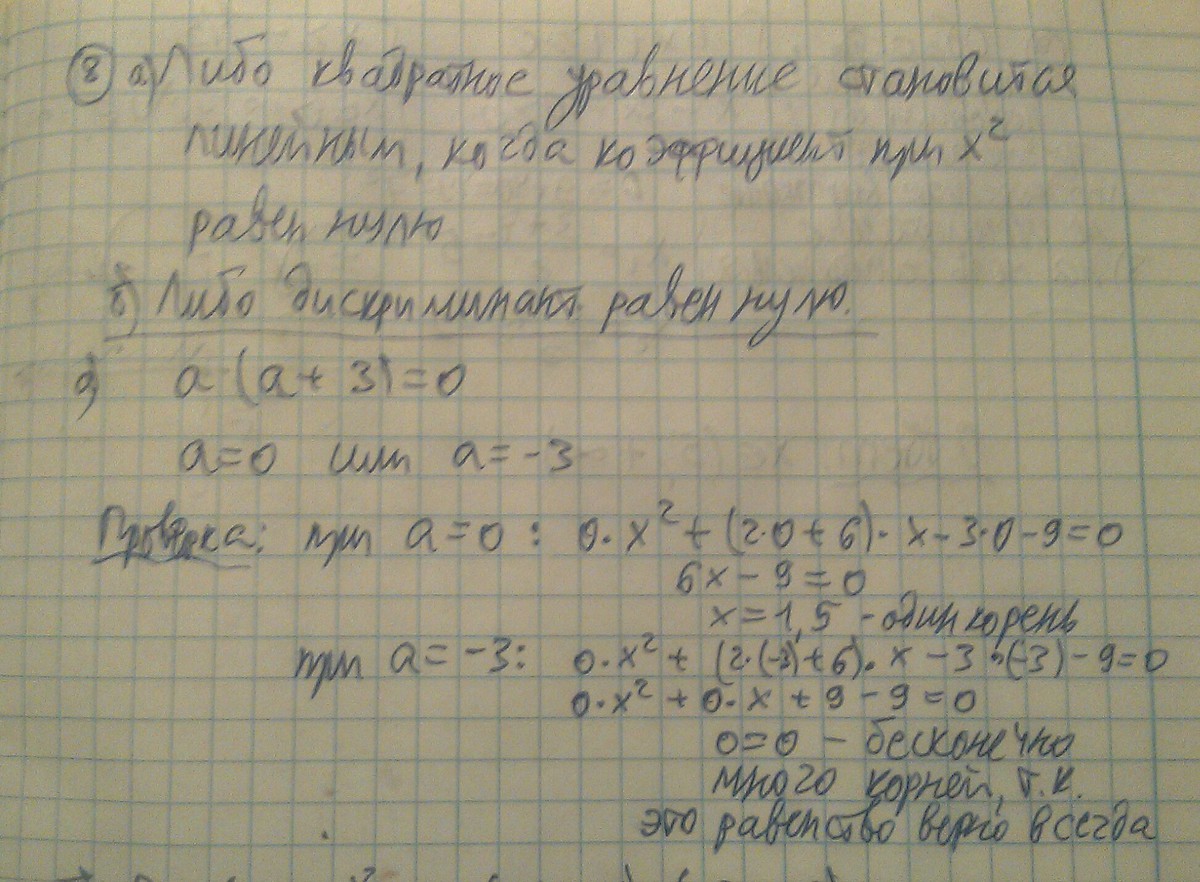 ② а) Либо квадратное уравнение становится
линейным, когда коэффициент при x²
равен нулю
б) Либо дискриминант равен нулю.
а) a(a+3)=0
a=0 или a=-3
Проверка: при a=0: 0·x²+(2·0+6)·x-3·0-9=0
6x-9=0
x=1,5 - один корень
при a=-3: 0·x²+(2·(-3)+6)·x-3·(-3)-9=0
0·x²+0·x+9-9=0
0=0 - бесконечно
много корней, т.к.
это равенство верно всегда